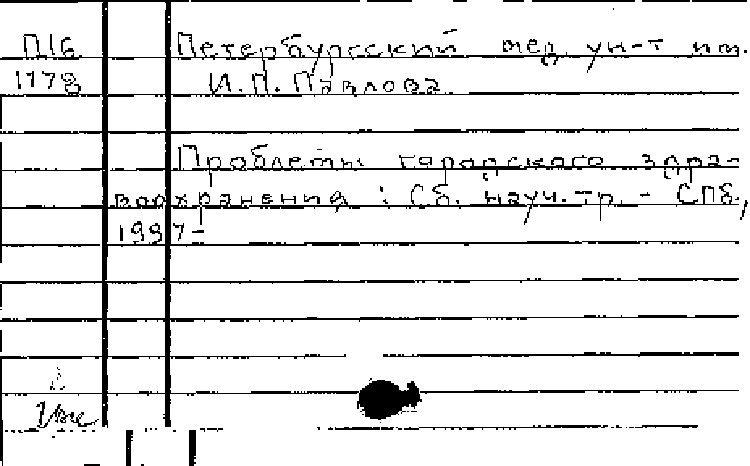 П16 Петербургский мед. ун-т им.
1178 И.П. Павлова.
Проблемы городского здра-
воохранения : Сб. науч. тр. - СПб.,
1997-